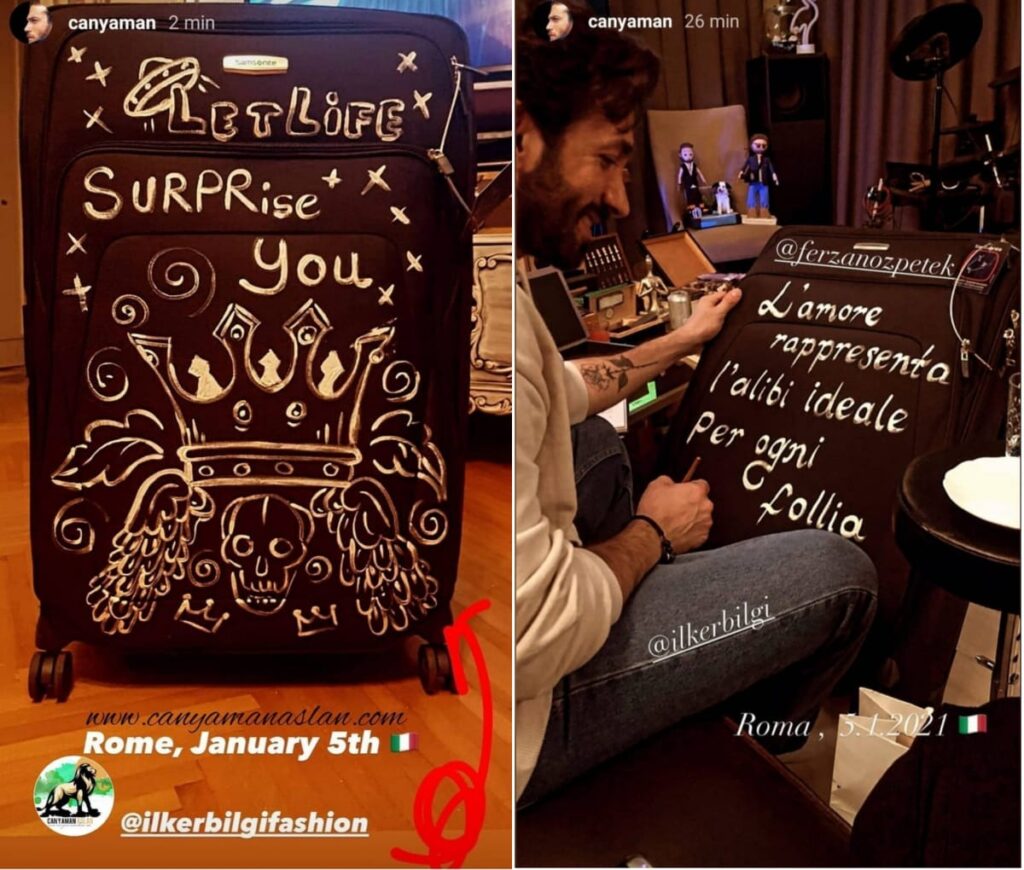 canyaman 2 min
Samsonite
LET LIFE
SURPRise
you
www.canyamanaslan.com
Rome, January 5th
@ilkerbilgifashion
canyaman 26 min
@ferzanozpetek
L'amore
rappresenta
l'alibi ideale
Per ogni
follia
@ilkerbilgi
Roma , 5.1.2021